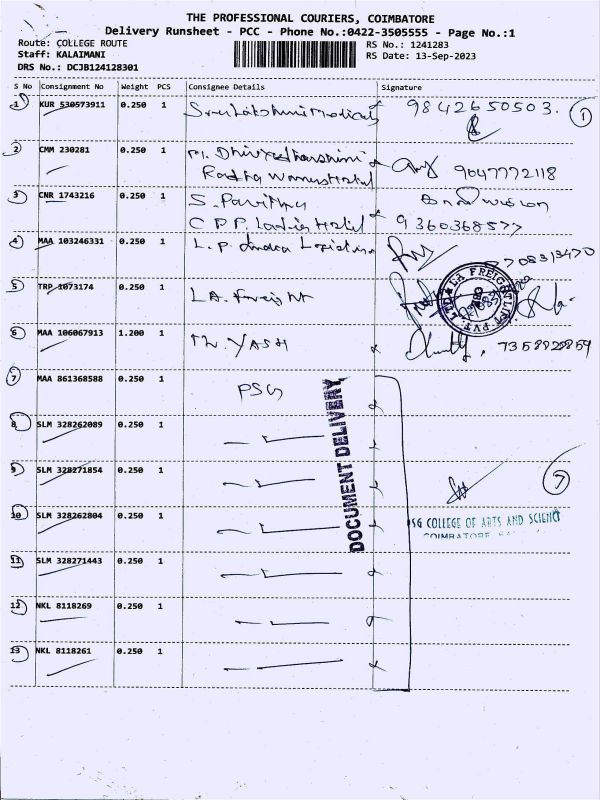 THE PROFESSIONAL COURIERS, COIMBATORE
Delivery Runsheet - PCC - Phone No.:0422-3505555 - Page No.:1
Route: COLLEGE ROUTE
Staff: KALAIMANI
DRS No.: DCJB124128301
RS No.: 1241283
RS Date: 13-Sep-2023
S No Consignment No Weight PCS Consignee Details Signature
1 KUR 530573911 0.250 1 Sree Lakshmi Medicals 9842650503. 1
2 CMM 230281 0.250 1 M. Dhivyadharshini 9047772118
Radha Womens Hostel
3 CNR 1743216 0.250 1 S. Pavithra
CPP Ladies Hostel 9360368577
4 MAA 103246331 0.250 1 L.P. Logistics 9708313470
5 TRP 1073174 0.250 1 LA. Freight
LA FREIGHTLIFT PVT. LTD
6 MAA 106067913 1.200 1 YASH 7358928859
7 MAA 861368588 0.250 1 PSG
8 SLM 328262089 0.250 1
9 SLM 328271854 0.250 1 7
10 SLM 328262804 0.250 1
DOCUMENT DELIVERY
SG COLLEGE OF ARTS AND SCIENC
COIMBATORE
11 SLM 328271443 0.250 1
12 NKL 8118269 0.250 1
13 NKL 8118261 0.250 1